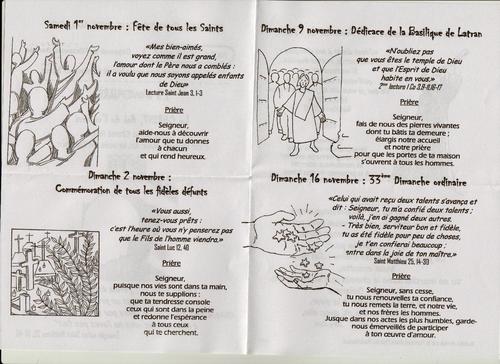 Samedi 1er novembre : Fête de tous les Saints
«Mes bien-aimés,
voyez comme il est grand,
l'amour dont le Père nous a comblés :
il a voulu que nous soyons appelés enfants
de Dieu»
Lecture Saint Jean 3, 1-3
Prière
Seigneur,
aide-nous à découvrir
l'amour que tu donnes
à chacun
et qui rend heureux.
Dimanche 2 novembre :
Commémoration de tous les fidèles défunts
«Vous aussi,
tenez-vous prêts :
c'est l'heure où vous n'y penserez pas
que le Fils de l'homme viendra.»
Saint Luc 12, 40
Prière
Seigneur,
puisque nos vies sont dans ta main,
nous te supplions :
que ta tendresse console
ceux qui sont dans la peine
et redonne l'espérance
à tous ceux
qui te cherchent.
Dimanche 9 novembre : Dédicace de la Basilique de Latran
«N'oubliez pas
que vous êtes le temple de Dieu
et que l'Esprit de Dieu
habite en vous.»
2ème lecture 1 Co 3,9-11,16-17
Prière
Seigneur,
fais de nous des pierres vivantes
dont tu bâtis ta demeure ;
élargis notre accueil
et notre prière
pour que les portes de ta maison
s'ouvrent à tous les hommes.
Dimanche 16 novembre : 33ème Dimanche ordinaire
«Celui qui avait reçu deux talents s'avança et
dit : Seigneur, tu m'a confié deux talents ;
voilà, j'en ai gagné deux autres.
- Très bien, serviteur bon et fidèle,
tu as été fidèle pour peu de choses,
je t'en confierai beaucoup ;
entre dans la joie de ton maître.»
Saint Matthieu 25, 14-30
Prière
Seigneur, sans cesse,
tu nous renouvelles ta confiance,
tu nous remets la terre, et notre vie,
et nos frères les hommes.
Jusque dans nos actes les plus humbles, garde-
nous émerveillés de participer
à ton œuvre d'amour.